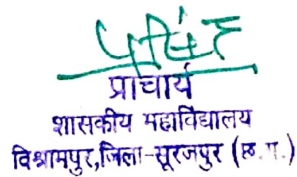 प्राचार्य
शासकीय महाविद्यालय
विश्रामपुर,जिला-सूरजपुर (छ.ग.)